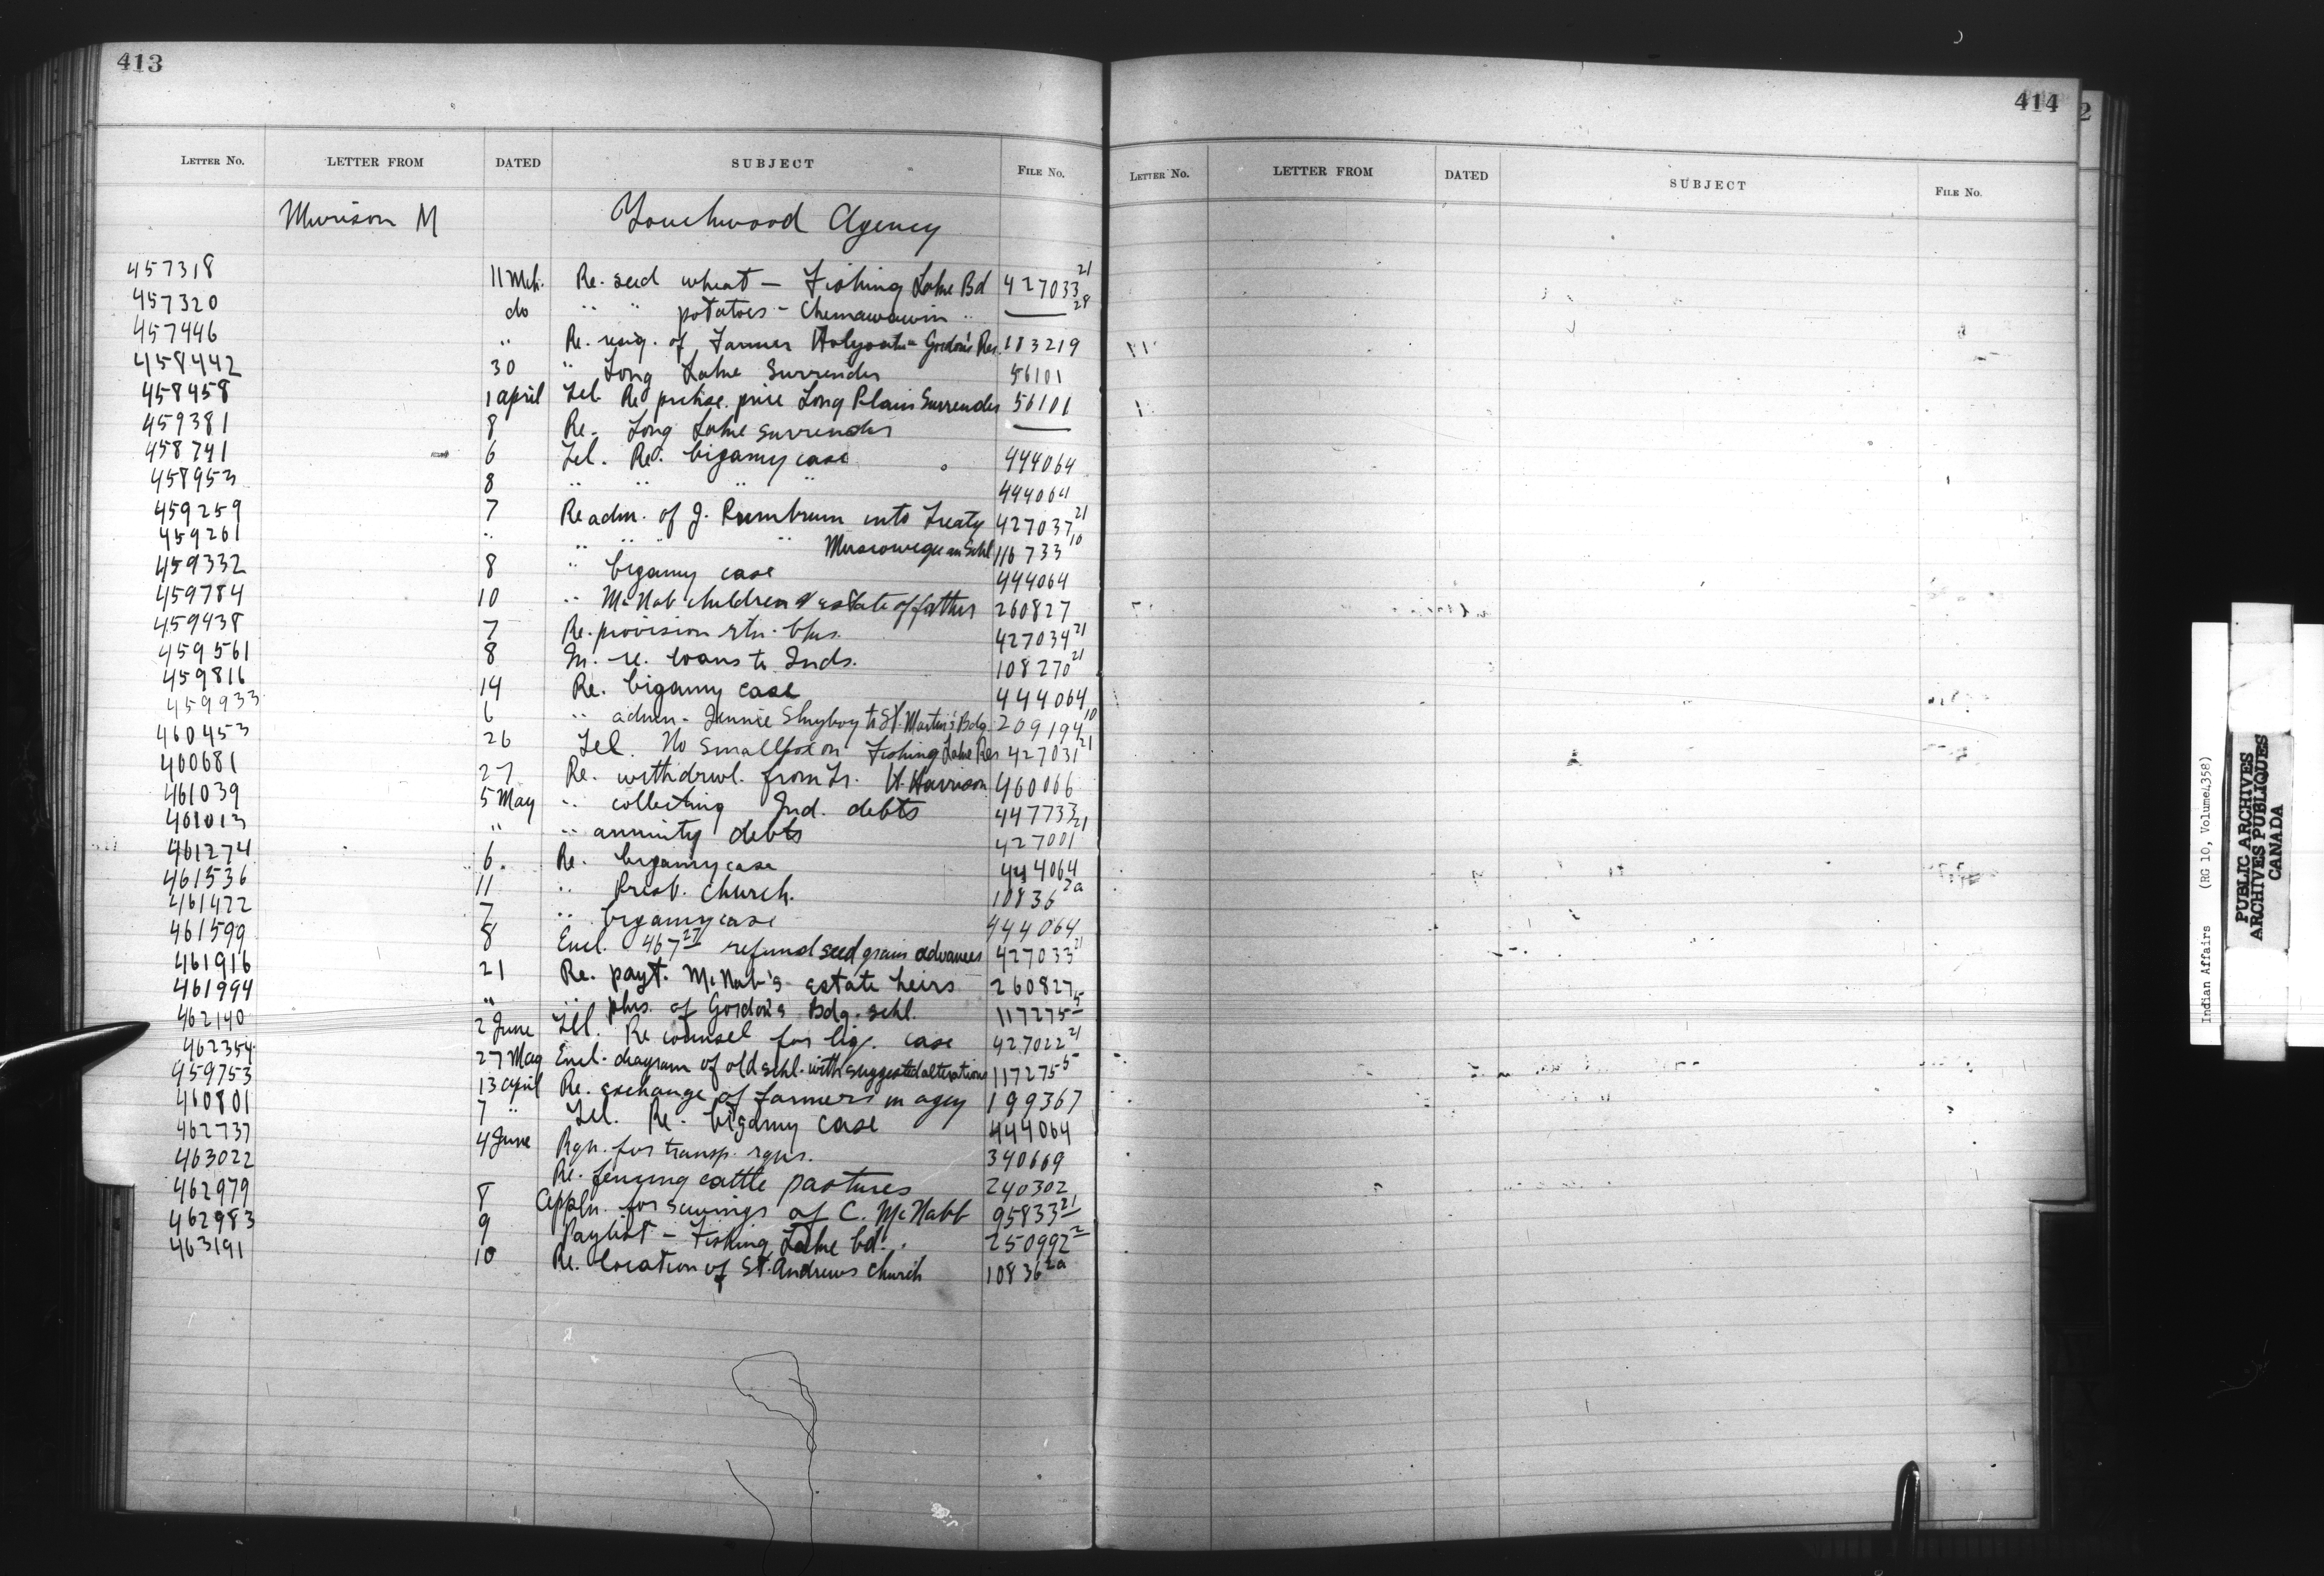 413
LETTER No. LETTER FROM DATED SUBJECT FILE No.
Murison M Touchwood Agency
457318 11 Mch. Re. seed wheat — Fishing Lake Bd 427033 21
457320 do " " potatoes - Chemawawin " —— 28
457446 " Re. resig. of Farmer - Gordon's Res. 183219
458442 30 " Long Lake Surrender 56101
458458 1 april Tel. Re purchse. price Long Plain Surrender 56101
459381 8 Re. Long Lake surrender ——
458741 6 Tel. Re. bigamy case 444064
458953 8 " " " " 444064
459259 7 Re adm. of J. into Treaty 427037 21
459261 " " " " Muscowequan Schl 116733 10
459332 8 " bigamy case 444064
459784 10 " McNab children & estate of father 260827
459438 7 Re. provision rtn. 427034 21
459561 8 In. re. loans to Inds. 108270 21
459816 14 Re. bigamy case 444064
459933 6 " admn - Jennie Shyboy to St. Martin's Bdg. 209194 10
460453 26 Tel. No Smallpox on Fishing Lake Res 427031 21
460681 27 Re. withdrwl. from Tr. H. Harrison 460066
461039 5 May " collecting Ind. debts 447733
461013 " " annuity debts 427001 21
461274 6. Re. bigamy case 444064
461536 11 " Presb. Church. 10836 2a
461422 7 " bigamy case 444064
461599 8 Encl. 467 27 refund seed grain advances 427033 21
461916 21 Re. payt. McNab's estate heirs 260827
461994 " " plns. of Gordon's Bdg. schl. 117275 5
462140 2 June Tel. Re counsel for big. case 427022 21
462354 27 May Encl. diagram of old schl. with suggested alterations 117275 5
459753 13 april Re. exchange of farmers in agcy 199367
460801 7 " Tel. Re. bigamy case 444064
462737 4 June Rqn. for transp. rqns. 340669
463022 Re. fencing cattle pastures 240302
462979 8 Appln. for savings of C. McNabb 95833 21
462983 9 Paylist — Fishing Lake bd. 250992 2
463191 10 Re. location of St. Andrews Church 10836 2a
414
LETTER No. LETTER FROM DATED SUBJECT FILE No.
2
Indian Affairs (RG 10, Volume 1,358)
PUBLIC ARCHIVES
ARCHIVES PUBLIQUES
CANADA